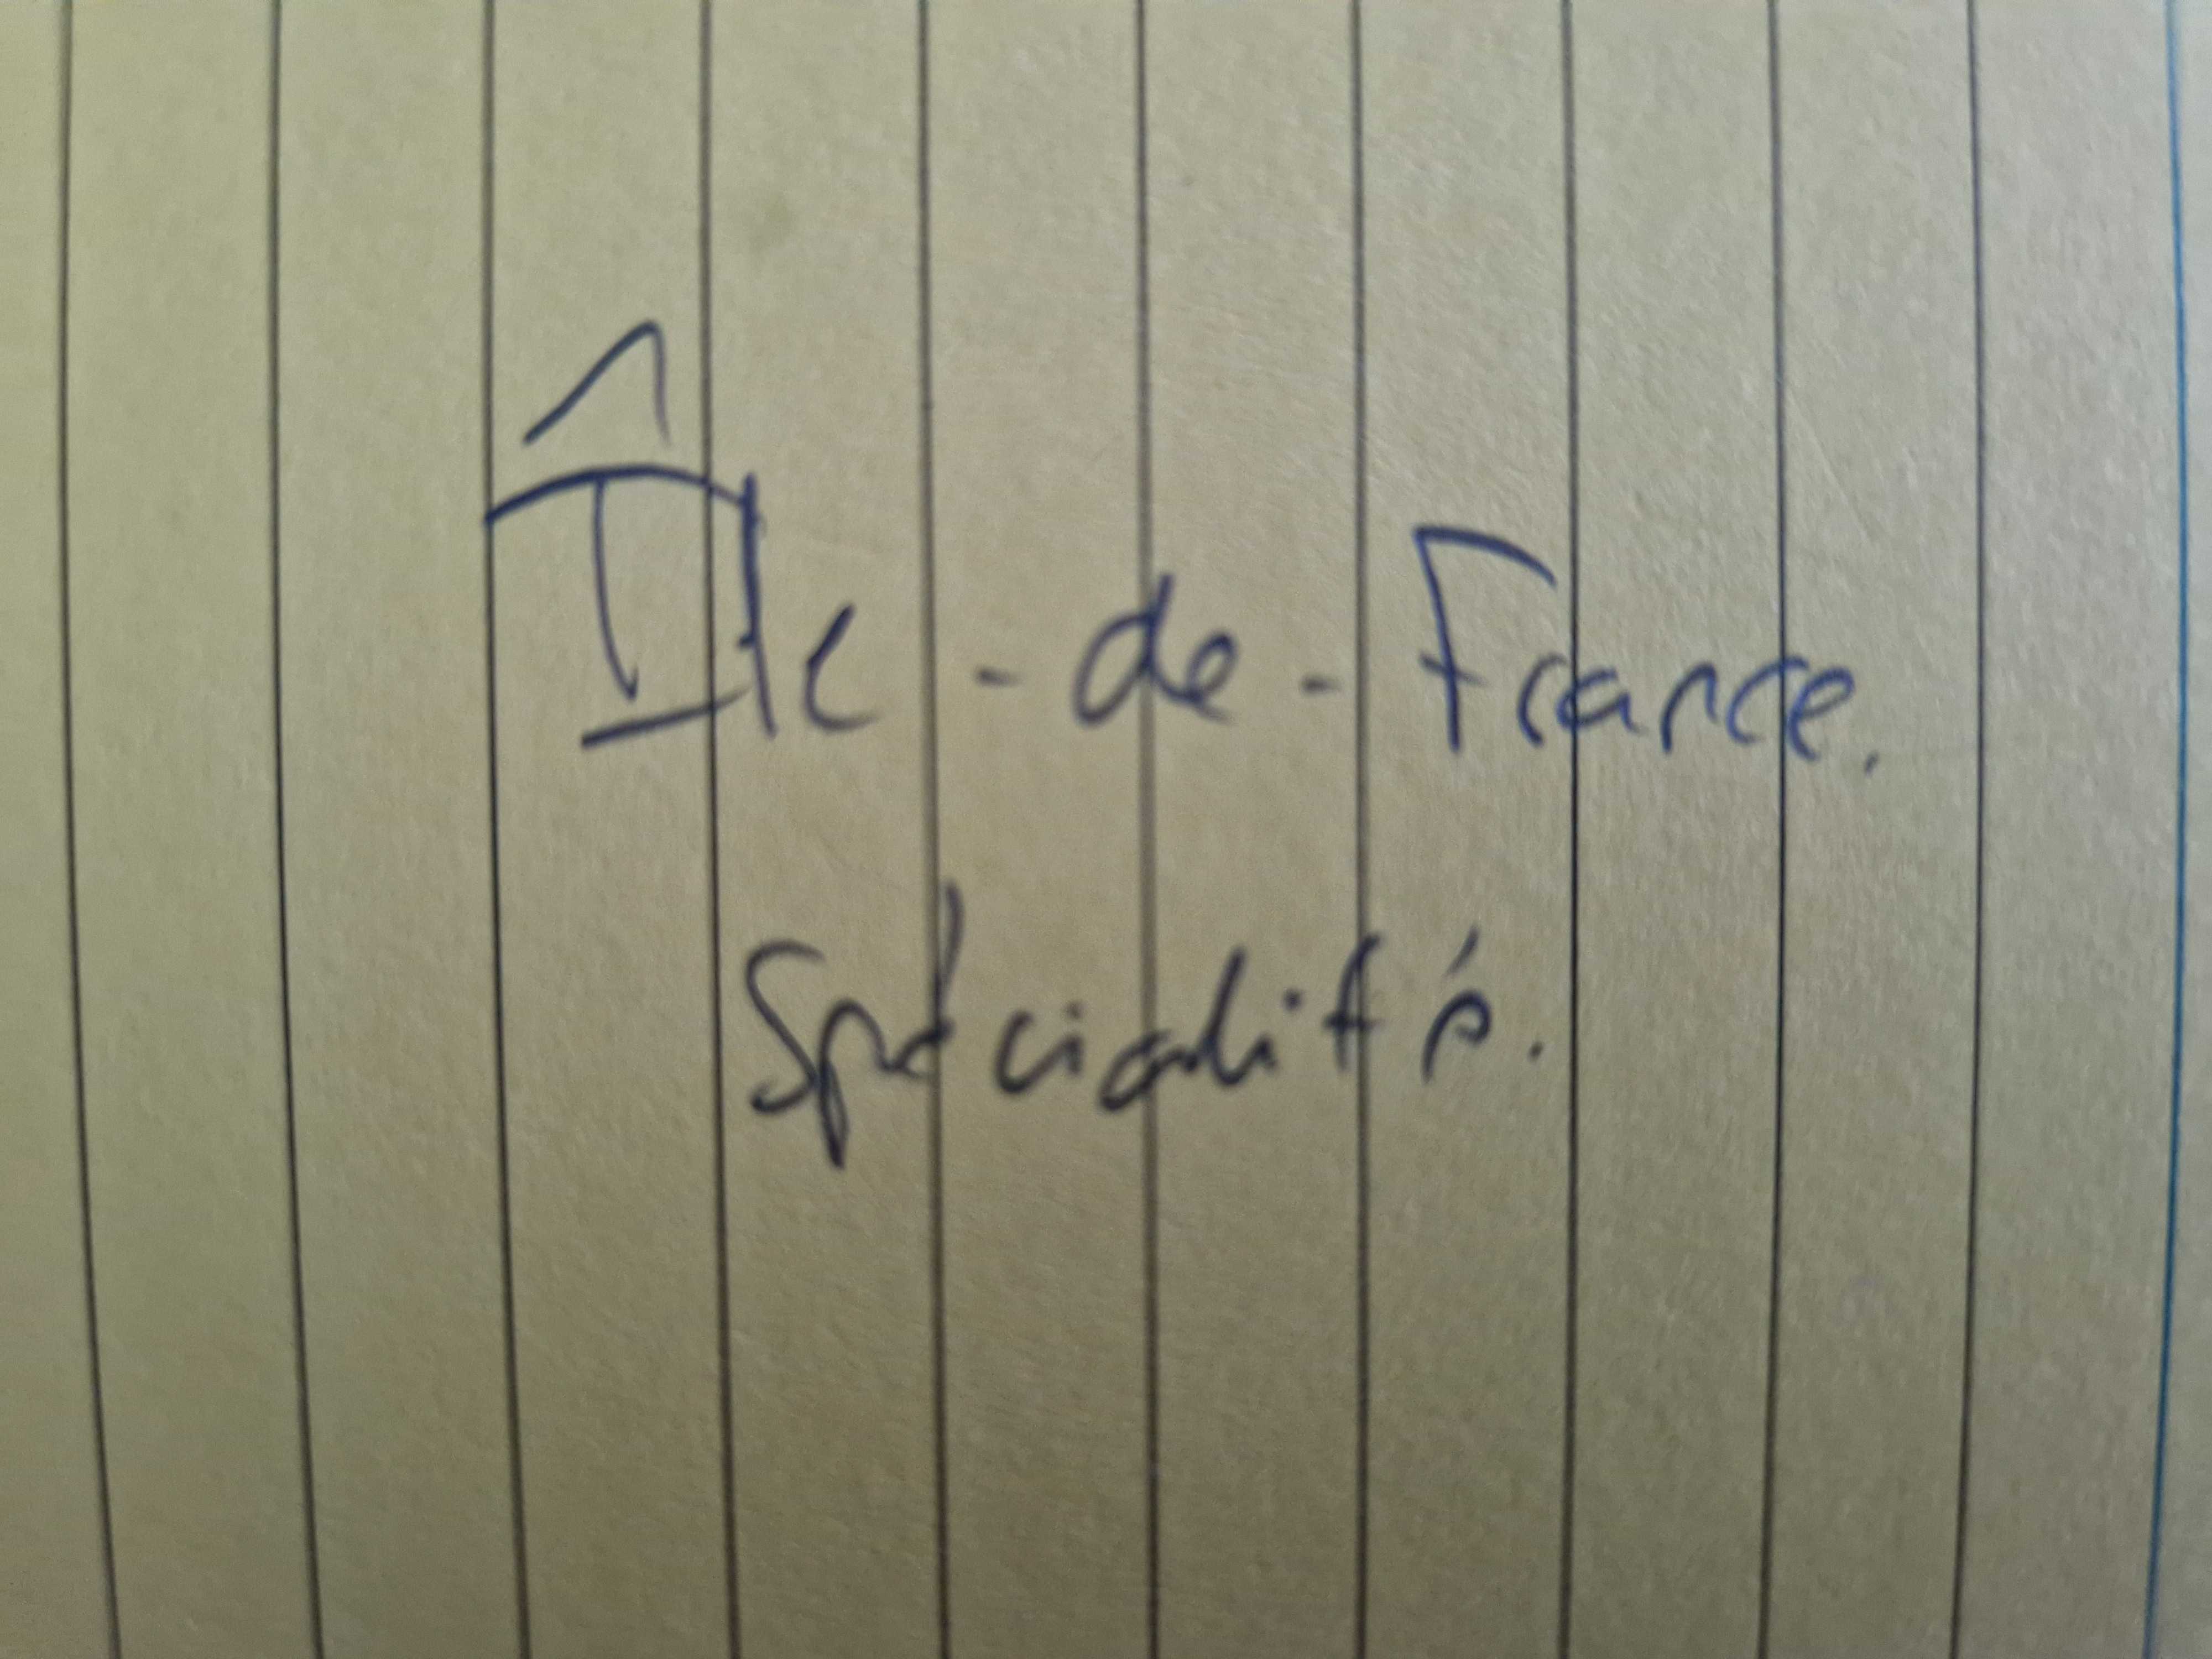 Île-de-France.
Spécialité.